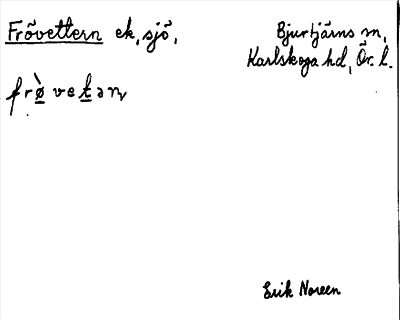 Frövettern ek, sjö,
Bjurtjärns sn,
Karlskoga hd, Ör. l.
frø̀ vetəṇ
Erik Noreen